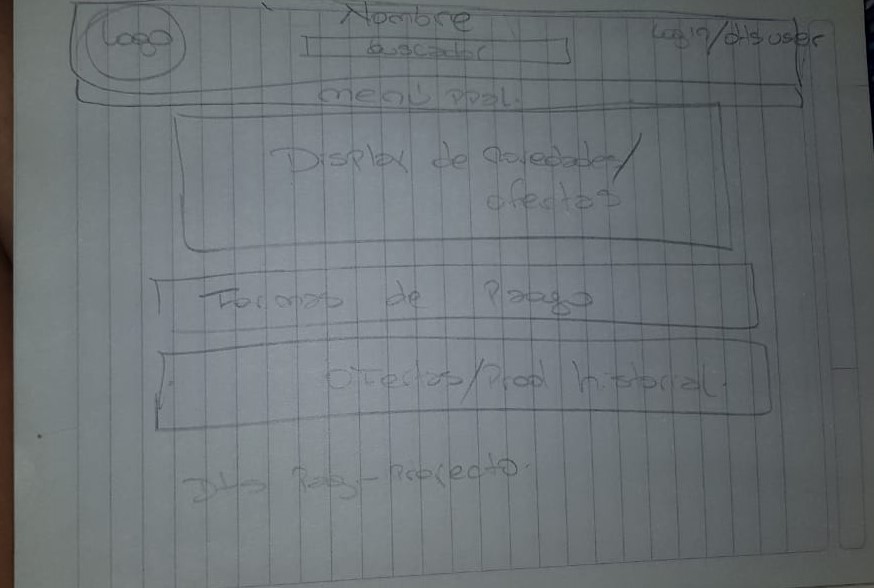 Nombre
Logo
Login/dts user
buscador
menú ppal.
Display de novedades/
ofertas
Formas de Pago
Ofertas/Prod historial.
Dts Pag-Proyecto.